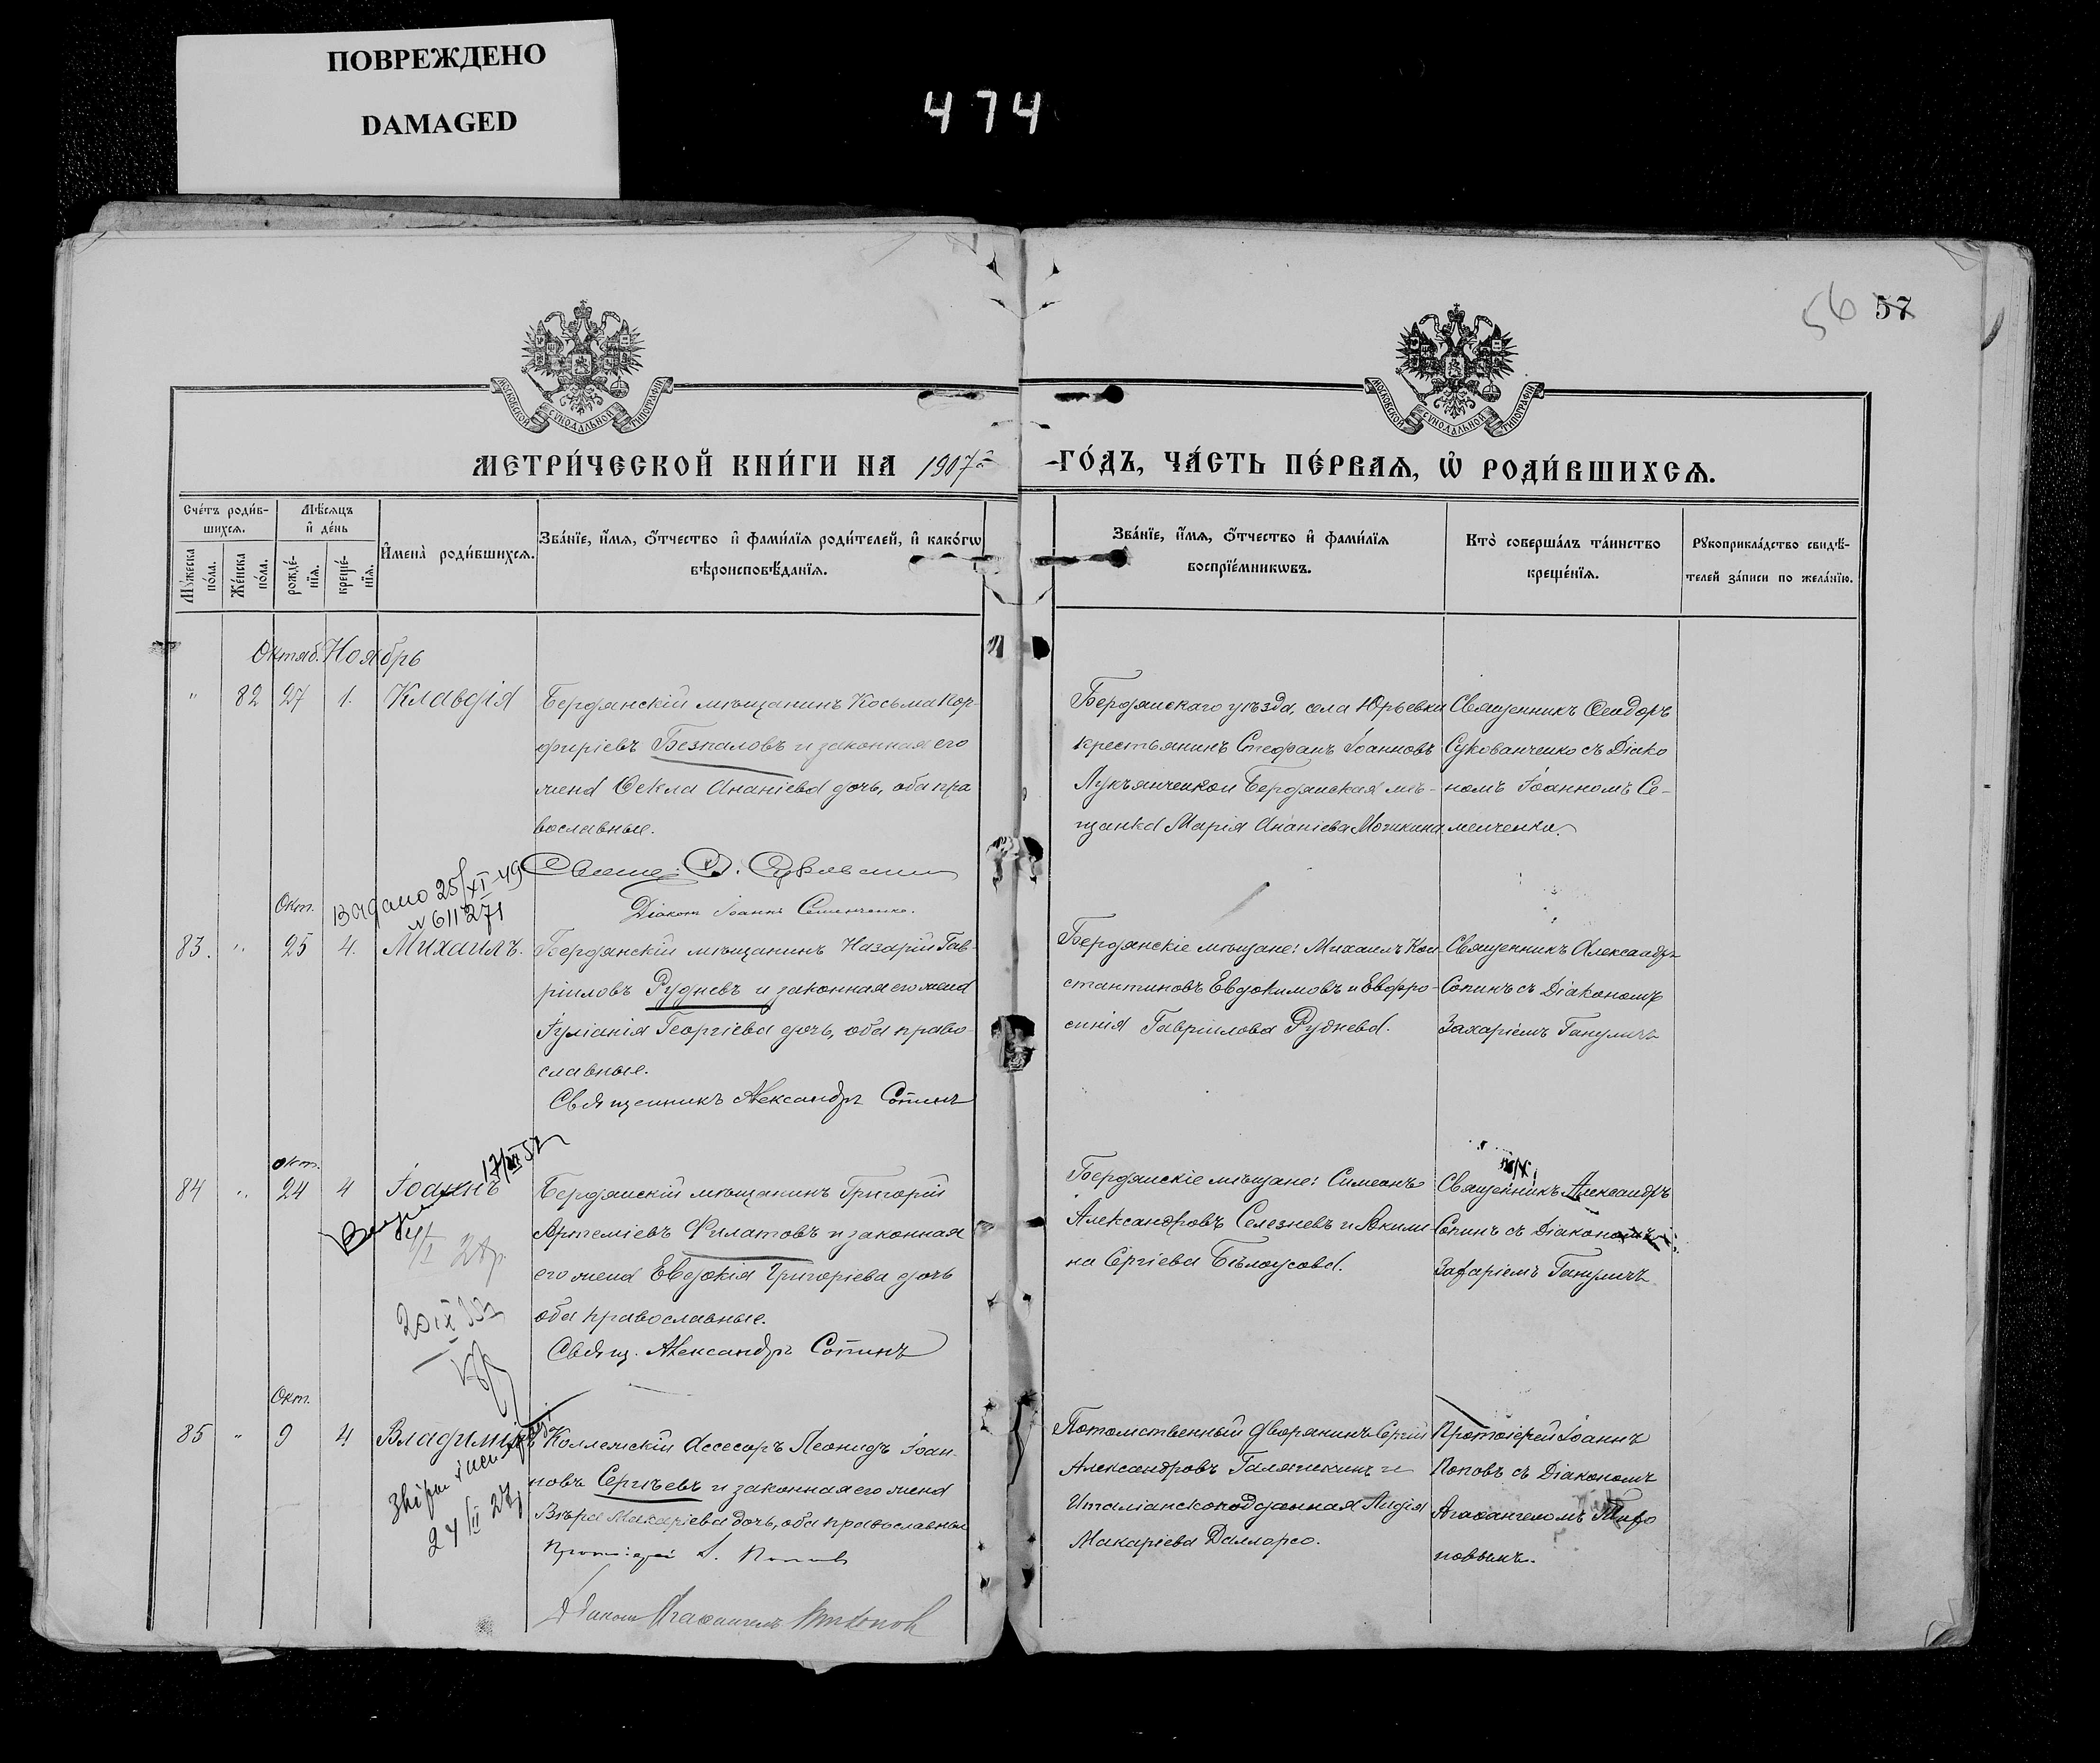 ПОВРЕЖДЕНО
DAMAGED
474
56 57
МОСКОВСКОЙ СѴНОДАЛЬНОЙ ТИПОГРАФІИ
МОСКОВСКОЙ СѴНОДАЛЬНОЙ ТИПОГРАФІИ
МЕТРИ́ЧЕСКОЙ КНИ́ГИ НА 1907й
ГО́ДЪ, ЧА́СТЬ ПЕ́РВАѦ, Ѡ҆ РОДИ́ВШИХСѦ.
Сче́тъ роди́в-
шихсѧ.
Мꙋ́жеска
по́ла.
Же́нска
по́ла.
Мѣ́сѧцъ
и҆ де́нь
рожде́-
нїѧ.
креще́-
нїѧ.
И҆мена̀ роди́вшихсѧ.
Зва́нїе, и҆́мѧ, ѻ҆́тчество и҆ фами́лїѧ роди́телей, и҆ како́гѡ
вѣроисповѣ́данїѧ.
Зва́нїе, и҆́мѧ, ѻ҆́тчество и҆ фами́лїѧ
воспрїе́мникѡвъ.
Кто̀ соверша́лъ та́инство
креще́нїѧ.
Рꙋкоприкла́дство свидѣ́-
телей за́писи по жела́нїю.
Октяб. Ноябрь
" 82 27 1. Клавдія
Бердянскій мѣщанинъ Косьма Пор-
фиріевъ Безпаловъ и законная его
жена Ѳекла Ананіева дочь, оба пра
вославные.
Діаконъ Іоаннъ Семенченко.
Бердянскаго уѣзда, села Юрьевки
крестьянинъ Стефанъ Іоанновъ
Лукъянченко и Бердянская мѣ-
щанка Марія Ананіева Мочикина
Священникъ Ѳеодоръ
Сукованченко съ Діако
номъ Іоанномъ Се-
менченко.
Выдано 25/XI-49
№ 611271
Окт.
83. " 25 4. Михаилъ.
Бердянскій мѣщанинъ Назарій Гав-
ріиловъ Рудневъ и законная его жена
Іуліанія Георгіева дочь, оба право-
славные.
Священникъ Александръ Сопинъ
Бердянскіе мѣщане: Михаилъ Кон-
стантиновъ Евдокимовъ и Евфро-
синія Гавріилова Руднева.
Священникъ Александръ
Сопинъ съ Діакономъ
Захаріемъ Ганулич
Окт.
84 " 24 4 Іоаннъ
Бердянскій мѣщанинъ Григорій
Артеміевъ Филатовъ и законная
его жена Евдокія Григоріева дочь
оба православные.
Свящ. Александръ Сопинъ
Бердянскіе мѣщане: Симеонъ
Александровъ Селезневъ и Акили-
на Сергіева Бѣлоусова.
Священникъ Александръ
Сопинъ съ Діакономъ
Захаріемъ Ганулич
Окт.
85 " 9 4 Владиміръ
24/II 27
Коллежскій Ассесоръ Леонидъ Іоан-
новъ Сергѣевъ и законная его жена
Вѣра Макаріева дочь, оба православные
Протоіерей І. Поповъ
Діаконъ Агаѳангелъ
Потомственный дворянинъ Сергій
Александровъ Галяшкинъ и
Италіанскоподданная Лидія
Макаріева Далларсо.
Протоіерей Іоаннъ
Поповъ съ Діакономъ
Агаѳангеломъ
новымъ.